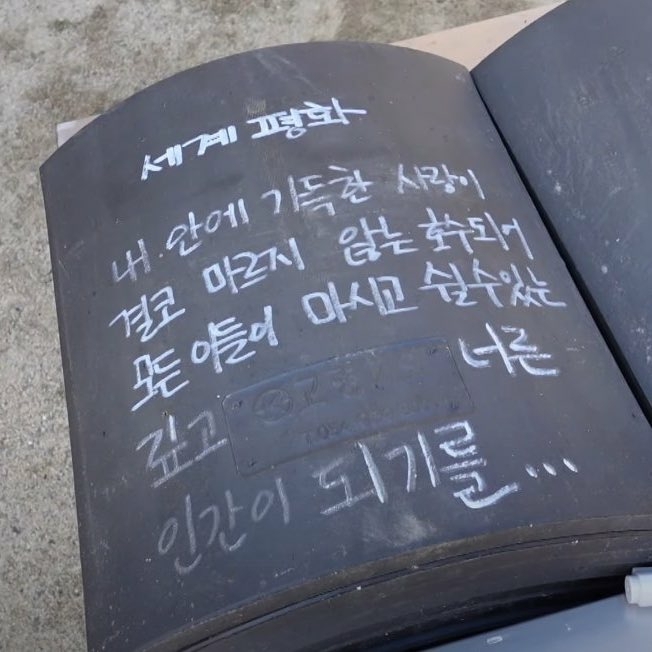 세계 평화
내 안에 기득한 사랑이
결코 마르지 않는 호수되어
모든 이들이 마시고 쉴수있는
깊고 너른
인간이 되기를...